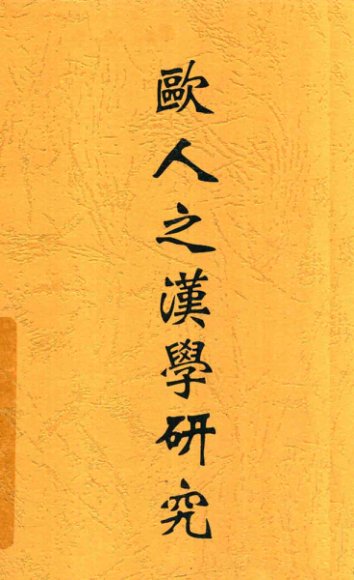 歐人之漢學研究